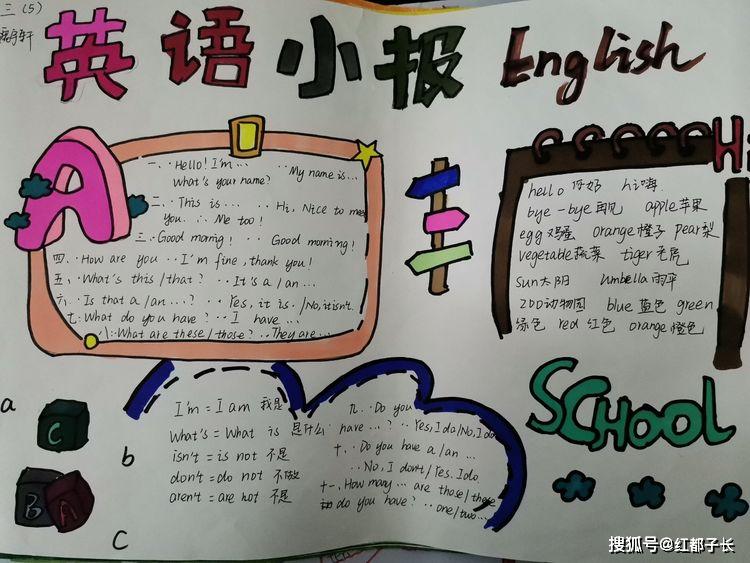 三(5)
轩
英语小报 English
A
一、·Hello! I'm... ··My name is...
What's your name?
二、·This is... ··Hi, Nice to meet
you. ··Me too!
三·Good morning! ·· Good morning!
四·How are you ··I'm fine, thank you!
五·What's this/that? ··It's a/an...
六·Is that a/an...? ··Yes, it is./No, it isn't.
七:What do you have? ··I have...
八:What are these/those? ··They are...
H
hello 你好 hi 嗨
bye-bye 再见 apple 苹果
egg 鸡蛋 orange 橙子 pear 梨
vegetable 蔬菜 tiger 老虎
sun 太阳 umbella 雨伞
ZOO 动物园 blue 蓝色 green
绿色 red 红色 orange 橙色
SCHOOL
a
C
B A
b
c
I'm = I am 我是
What's = What is 是什么
isn't = is not 不是
don't = do not 不做
aren't = are not 不是
九··Do you
have...? ··Yes, I do/No, I do
十··Do you have a/an...
··No, I don't/Yes. I do.
十一、How many... are those/these
do you have? ··one/two...
搜狐号@红都子长